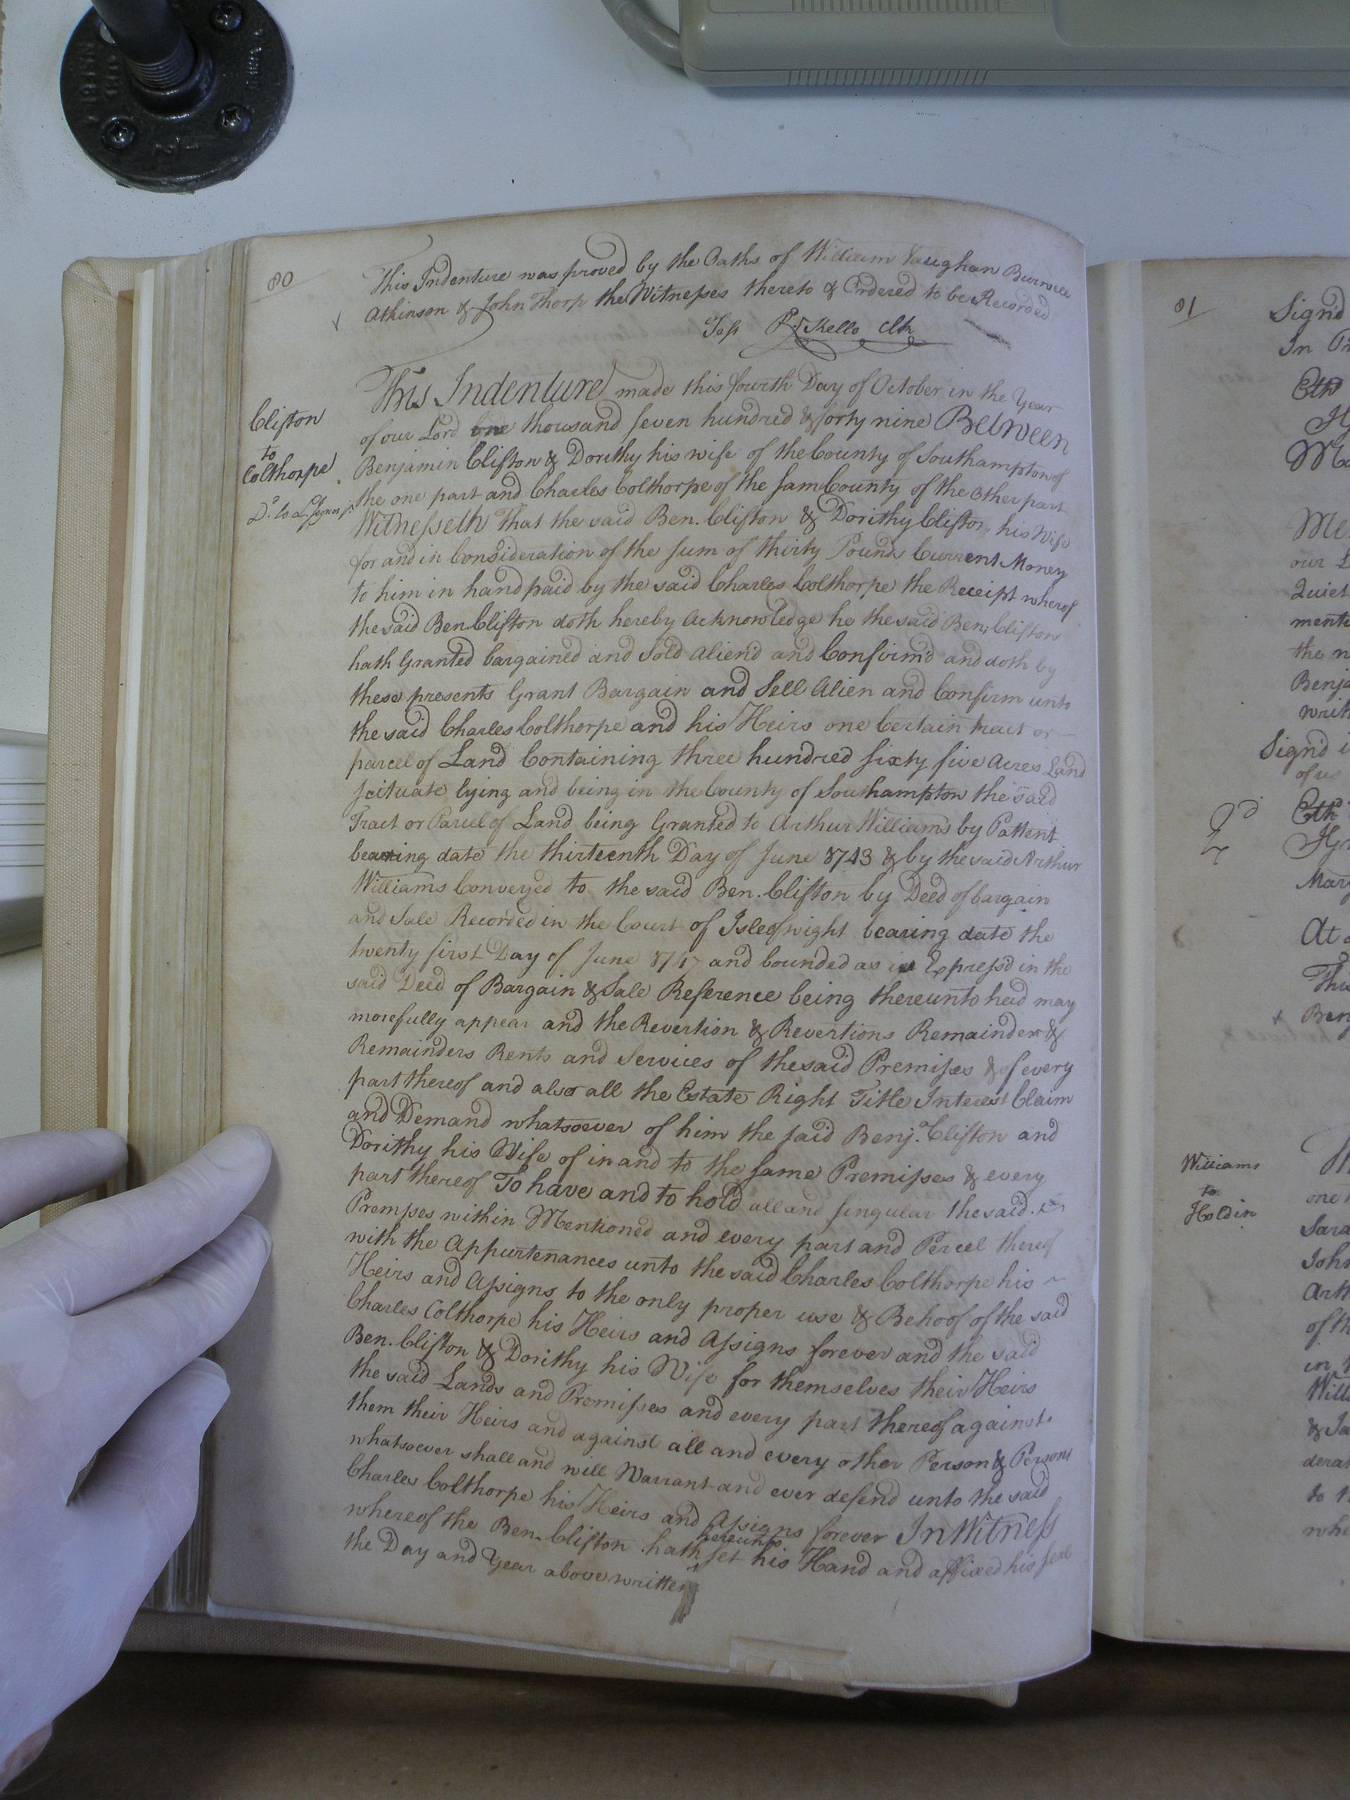 80
This Indenture was proved by the Oaths of William Vaughan Burwell
Atkinson & John Thorp the Witnesses thereto & Ordered to be Recorded
Test Rd Kello Clk
Clifton
to
Colthorpe
This Indenture made this fourth Day of October in the Year
of our Lord one thousand seven hundred & forty nine Between
Benjamin Clifton & Dorithy his wife of the County of Southampton of
the one part and Charles Colthorpe of the Sam County of the Other part
Witnesseth that the said Ben. Clifton & Dorithy Clifton his Wife
for and in Consideration of the sum of thirty Pounds Current Money
to him in hand paid by the said Charles Colthorpe the Receipt wherof
the said Ben Clifton doth hereby acknowledge he the said Benj Clifton
hath Granted bargained and Sold Aliend and Confirm'd and doth by
these presents Grant Bargain and Sell Alien and Confirm unto
the said Charles Colthorpe and his Heirs one Certain tract or
parcel of Land Containing three hundred sixty five Acres Land
scituate lying and being in the County of Southampton the said
Tract or Parcel of Land being Granted to Arthur Williams by Pattent
bearing date the thirteenth Day of June 1743 & by the said Arthur
Williams Conveyed to the said Ben. Clifton by Deed of bargain
and Sale Recorded in the Court of Isleofwight bearing date the
twenty first Day of June and bounded as is Express'd in the
said Deed of Bargain & Sale Reference being thereunto had may
morefully appear and the Revertion & Revertions Remainder &
Remainders Rents and Services of the said Premisses & of every
part thereof and also all the Estate Right Title Interest Claim
and Demand whatsoever of him the said Benj. Clifton and
Dorithy his Wife of in and to the same Premisses & every
part thereof To have and to hold all and singular the said
Premises within Mentioned and every part and Percel thereof
with the Appurtenances unto the said Charles Colthorpe his
Heirs and Assigns to the only proper use & Behoof of the said
Charles Colthorpe his Heirs and Assigns forever and the said
Ben. Clifton & Dorithy his Wife for themselves their Heirs
the said Lands and Premisses and every part thereof against
them their Heirs and against all and every other Person & Persons
whatsoever shall and will Warrant and ever defend unto the said
Charles Colthorpe his Heirs and Assigns forever In Witness
whereof the Ben. Clifton hath hereunto set his Hand and affixed his seal
the Day and Year above written
81
Sign'd
In
our
menti
the
Benja
Sign'd
of us
At
Williams
to
Holdin
John
in
to